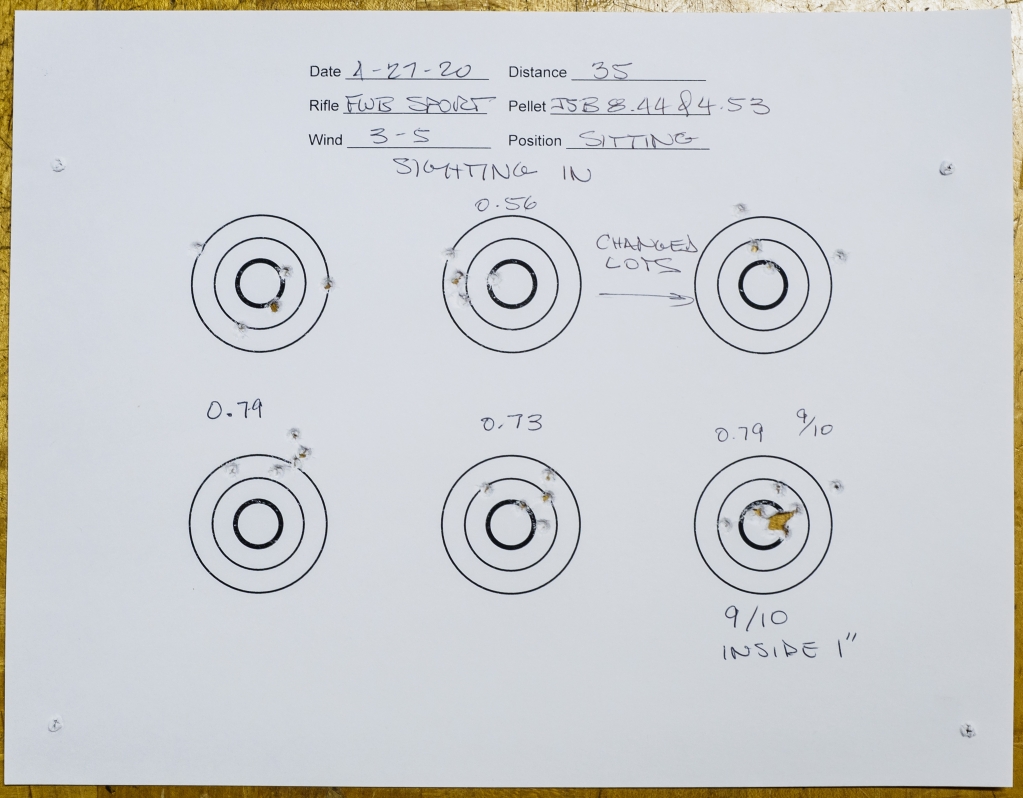 Date 1-27-20 Distance 35
Rifle FWB SPORT Pellet JSB 8.44 & 4.53
Wind 3-5 Position SITTING
SIGHTING IN
0.56
CHANGED
LOTS
0.79
0.73
0.79 9/10
9/10
INSIDE 1"